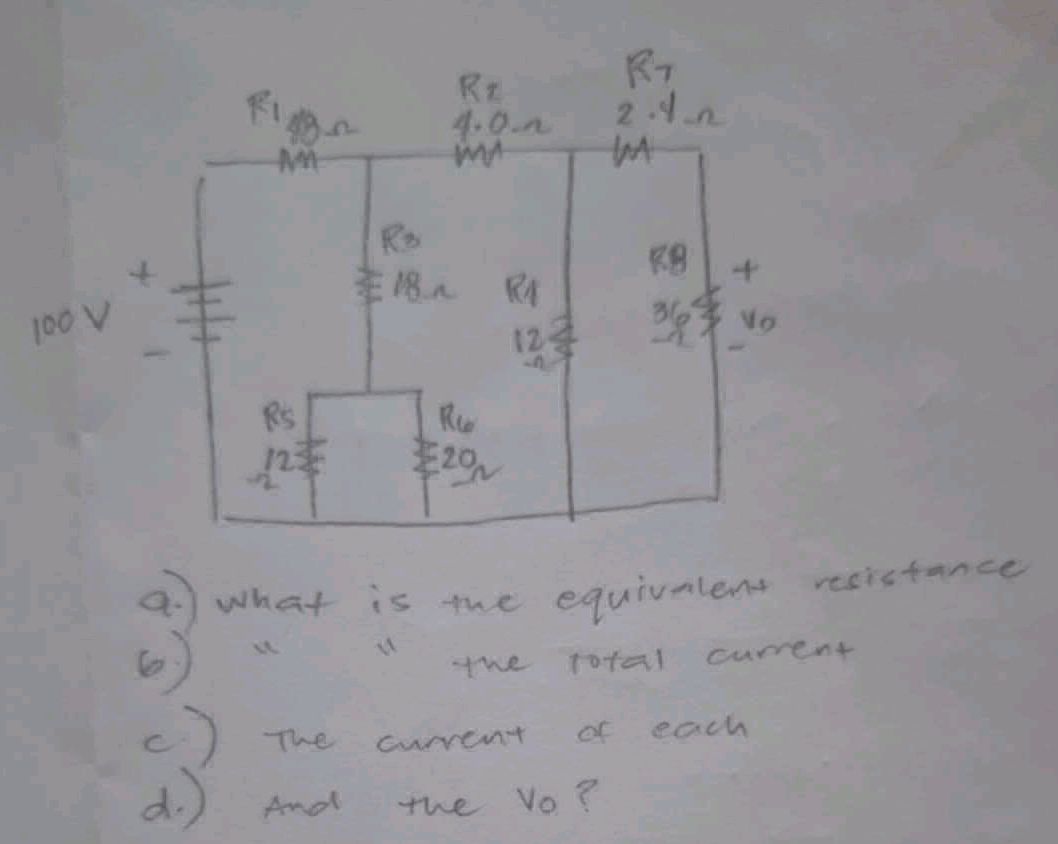 R1
R2
4.0Ω
R7
2.4Ω
100 V
+
-
R3
18Ω
R4
12
Ω
R8
36
Ω
+
Vo
-
R5
12
Ω
R6
20Ω
a.) What is the equivalent resistance
b.) " " the total current
c.) The current of each
d.) And the Vo?